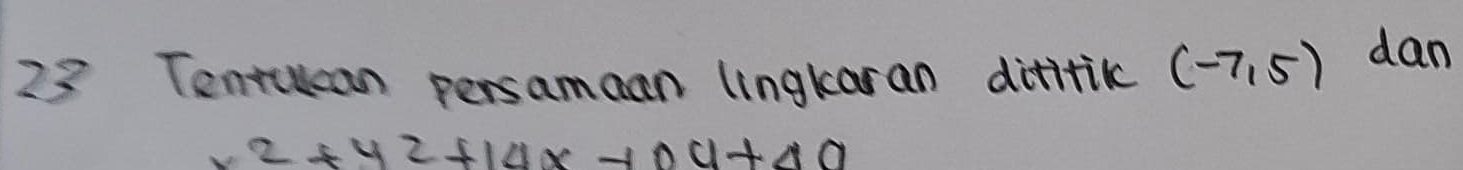 23 Tentukan persamaan lingkaran dititik (-7,5) dan
x2 + y2 + 14x - 10y + 40